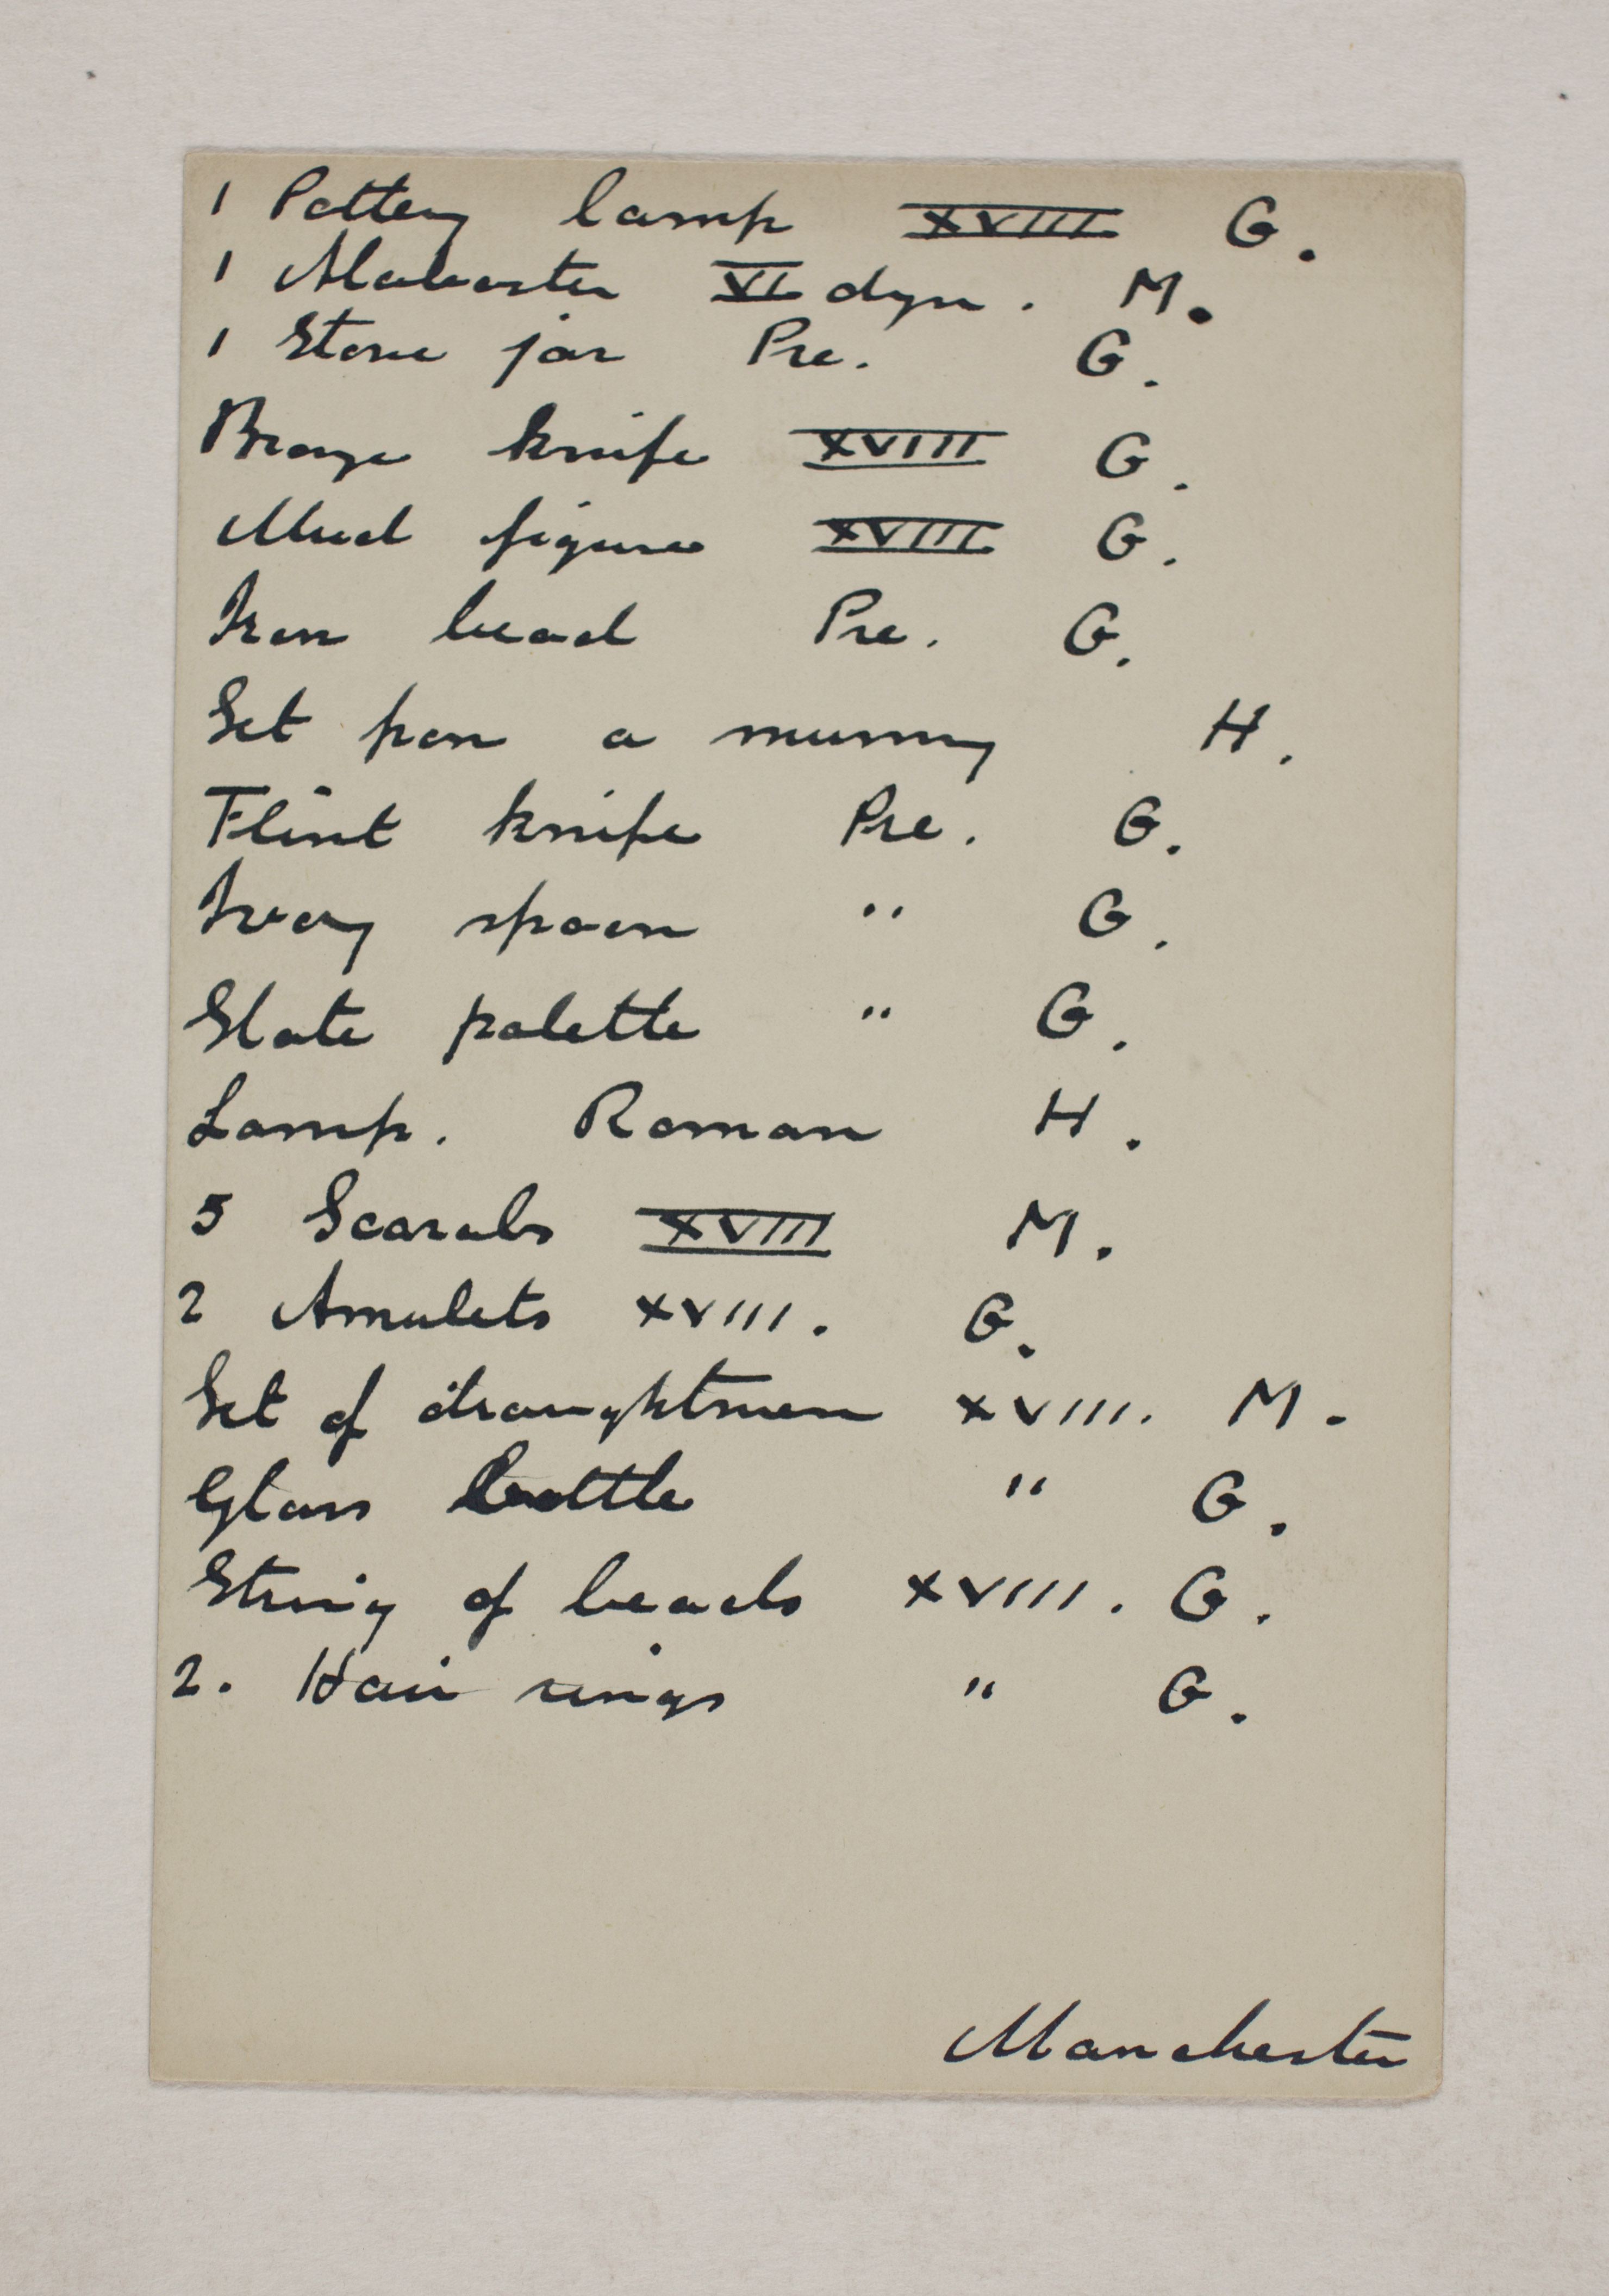 1 Pottery lamp XVIII G.
1 Alabaster VI dyn. M.
1 Stone jar Pre. G.
Bronze knife XVIII G.
Mud figure XVIII G.
Iron bead Pre. G.
Set from a mummy H.
Flint knife Pre. G.
Ivory spoon " G.
Slate palette " G.
Lamp. Roman H.
5 Scarabs XVIII M.
2 Amulets XVIII. G.
Set of draughtmen XVIII. M.
Glass bottle " G.
String of beads XVIII. G.
2. Hair rings " G.
Manchester